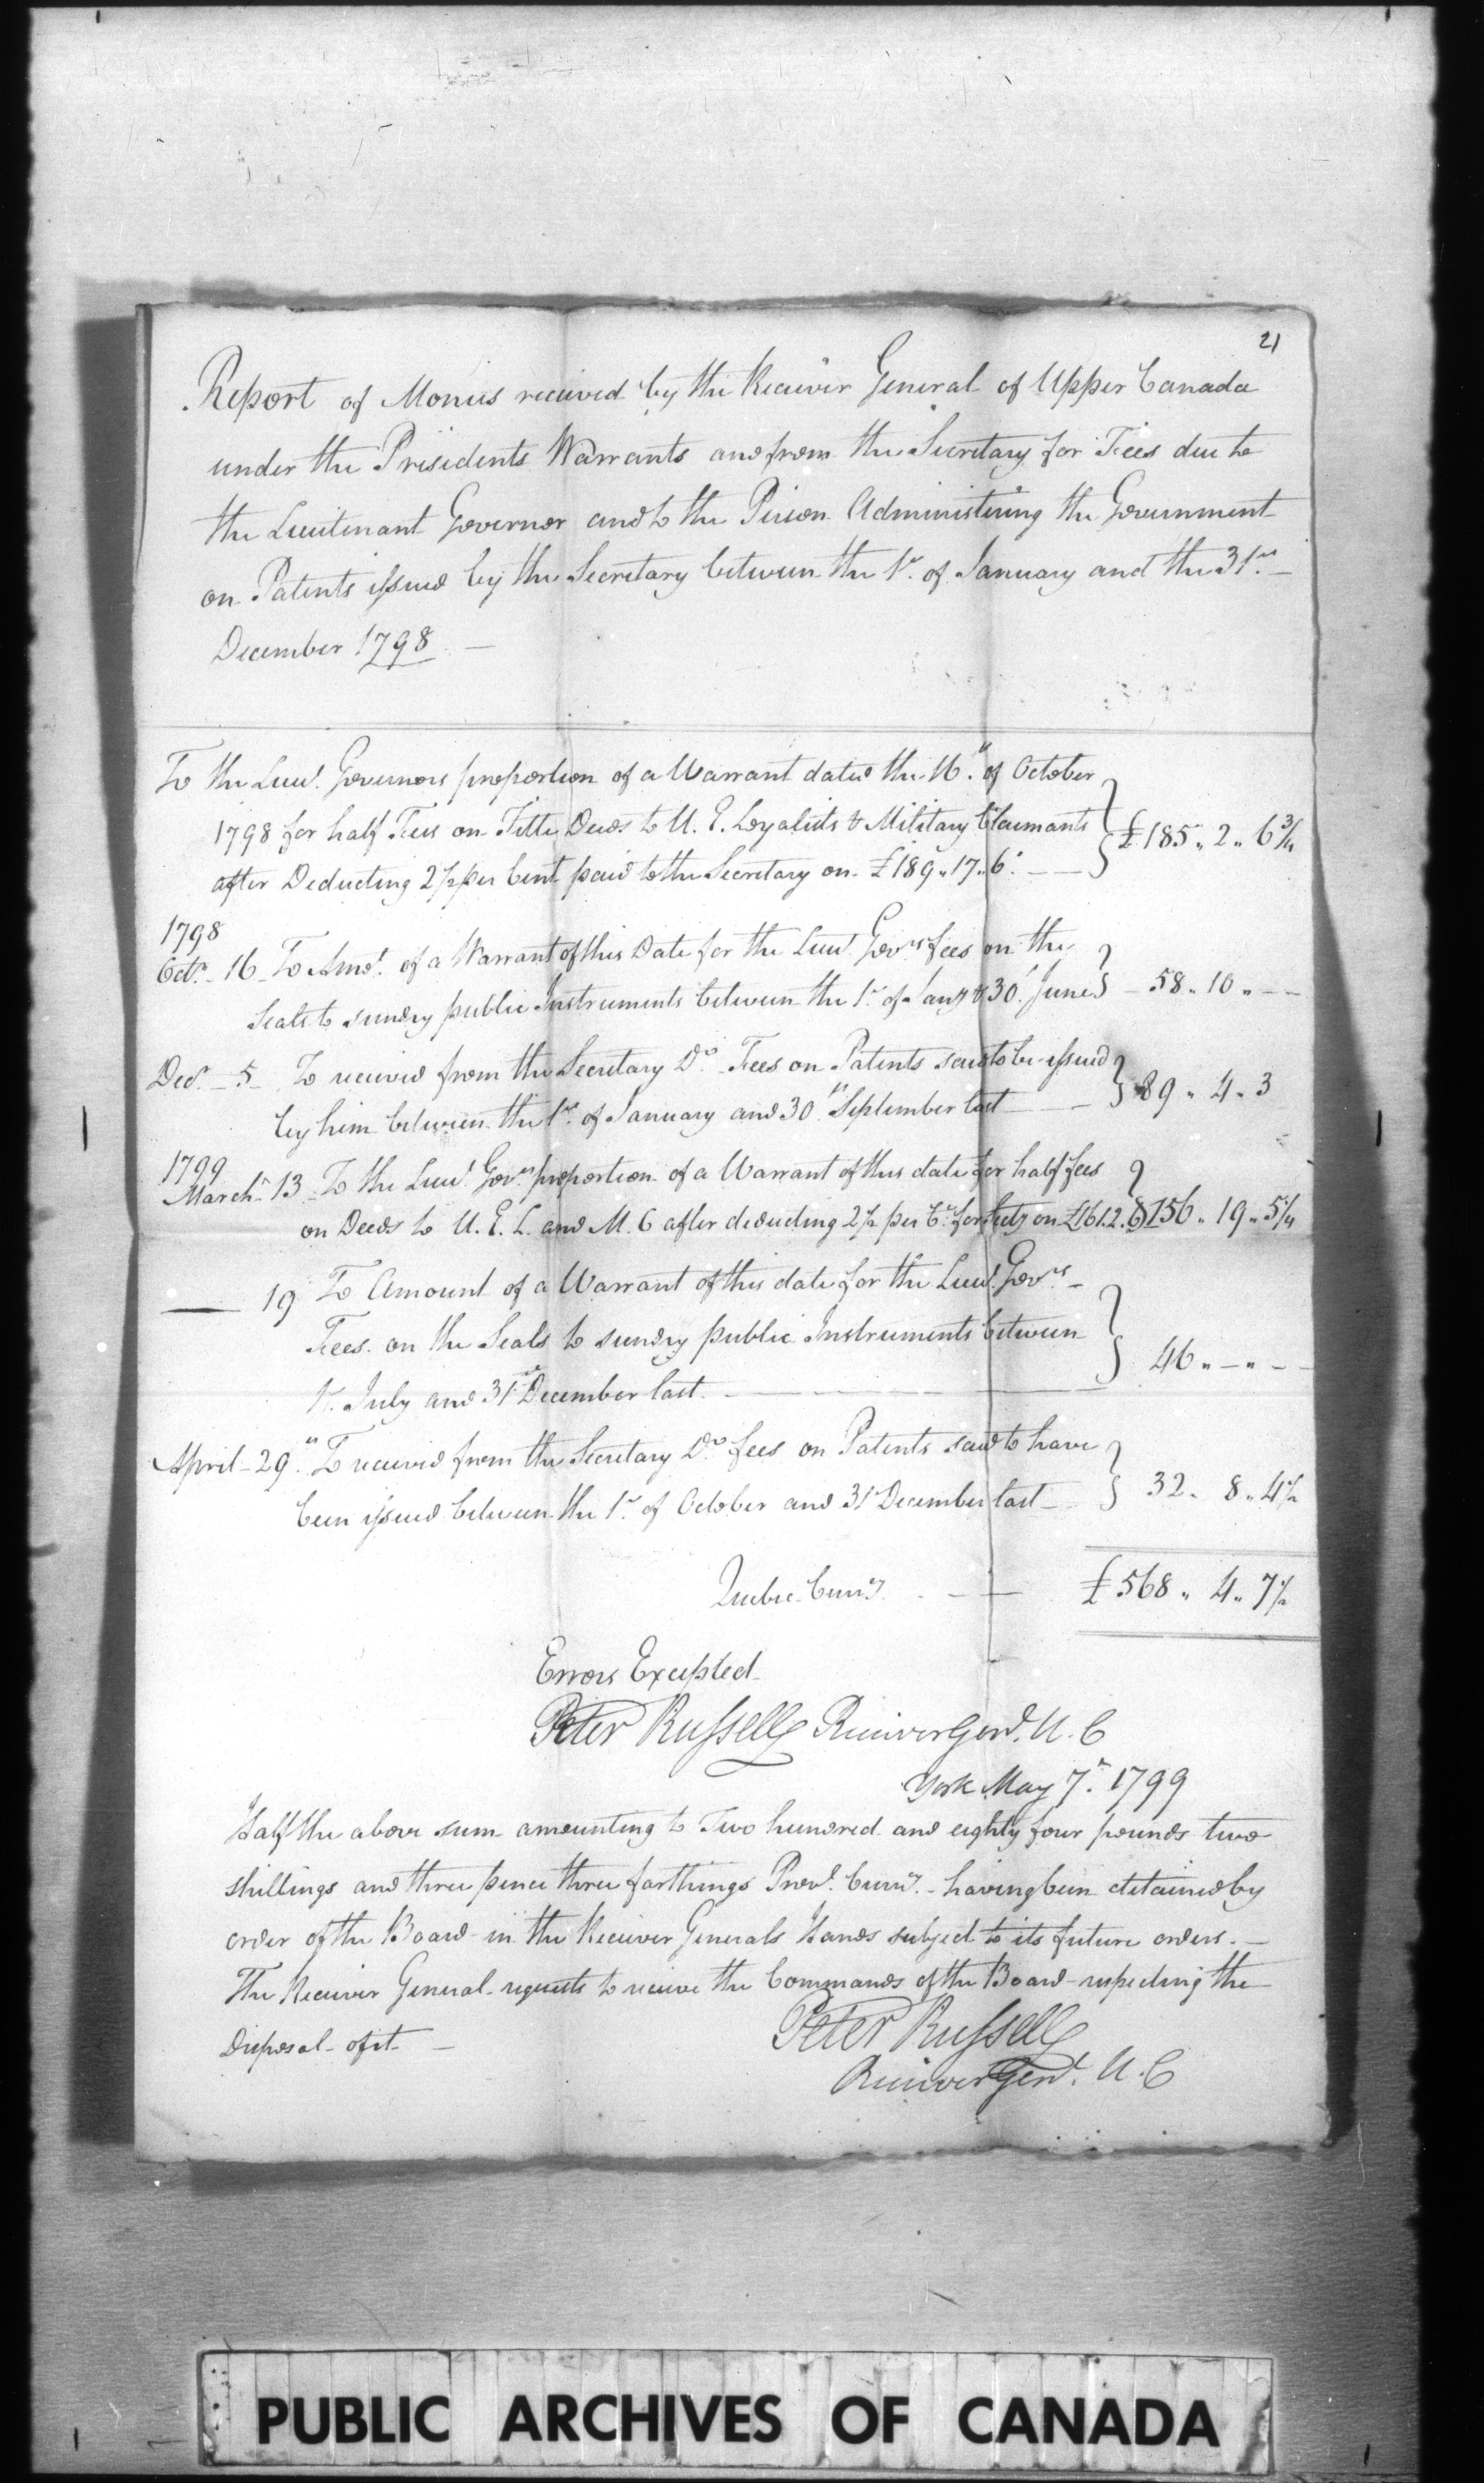 21
Report of Monies received by the Receiver General of Upper Canada
under the Presidents Warrants and from the Secretary for Fees due to
the Lieutenant Governor and to the Person Administering the Government
on Patents issued by the Secretary between the 1st. of January and the 31st.
December 1798
To the Lieut. Governors proportion of a Warrant dated the 16th. of October
1798 for half Fees on Title Deeds to U. E. Loyalists & Military Claimants
after Deducting 2½ per Cent paid to the Secretary on £189.. 17.. 6. } £185.. 2.. 6¾
1798
Octr. 16 To Amot. of a Warrant of this Date for the Lieut. Govrs. fees on the
Seals to sundry public Instruments between the 1st. of Jany & 30th. June } 58.. 10.. —
Decr. 5 To received from the Secretary Do. Fees on Patents said to be issued
by him between the 1st. of January and 30th September last } 89.. 4.. 3
1799
March 13 To the Lieut. Govrs. proportion of a Warrant of this date for half fees
on Deeds to U. E. L. and M. C after deducting 2½ per Ct. for Secty on £161.2.6 } 156.. 19.. 5¼
—— 19 To Amount of a Warrant of this date for the Lieut. Govrs.
Fees on the Seals to sundry public Instruments between
1st. July and 31st December last } 46.. — .. —
April 29th. To received from the Secretary Do. fees on Patents said to have
been issued between the 1st. of October and 31st December last } 32.. 8.. 4½
Quebec Curry. £568.. 4.. 7½
Errors Excepted
Peter Russell Receiver Genl. U. C
York May 7th. 1799
Half the above sum amounting to Two hundred and eighty four pounds two
shillings and three pence three farthings Provl. Curry. having been detained by
order of the Board in the Receiver Generals Hands subject to its future orders.
The Receiver General requests to receive the Commands of the Board respecting the
Disposal of it
Peter Russell
Receiver Genl. U. C
PUBLIC ARCHIVES OF CANADA